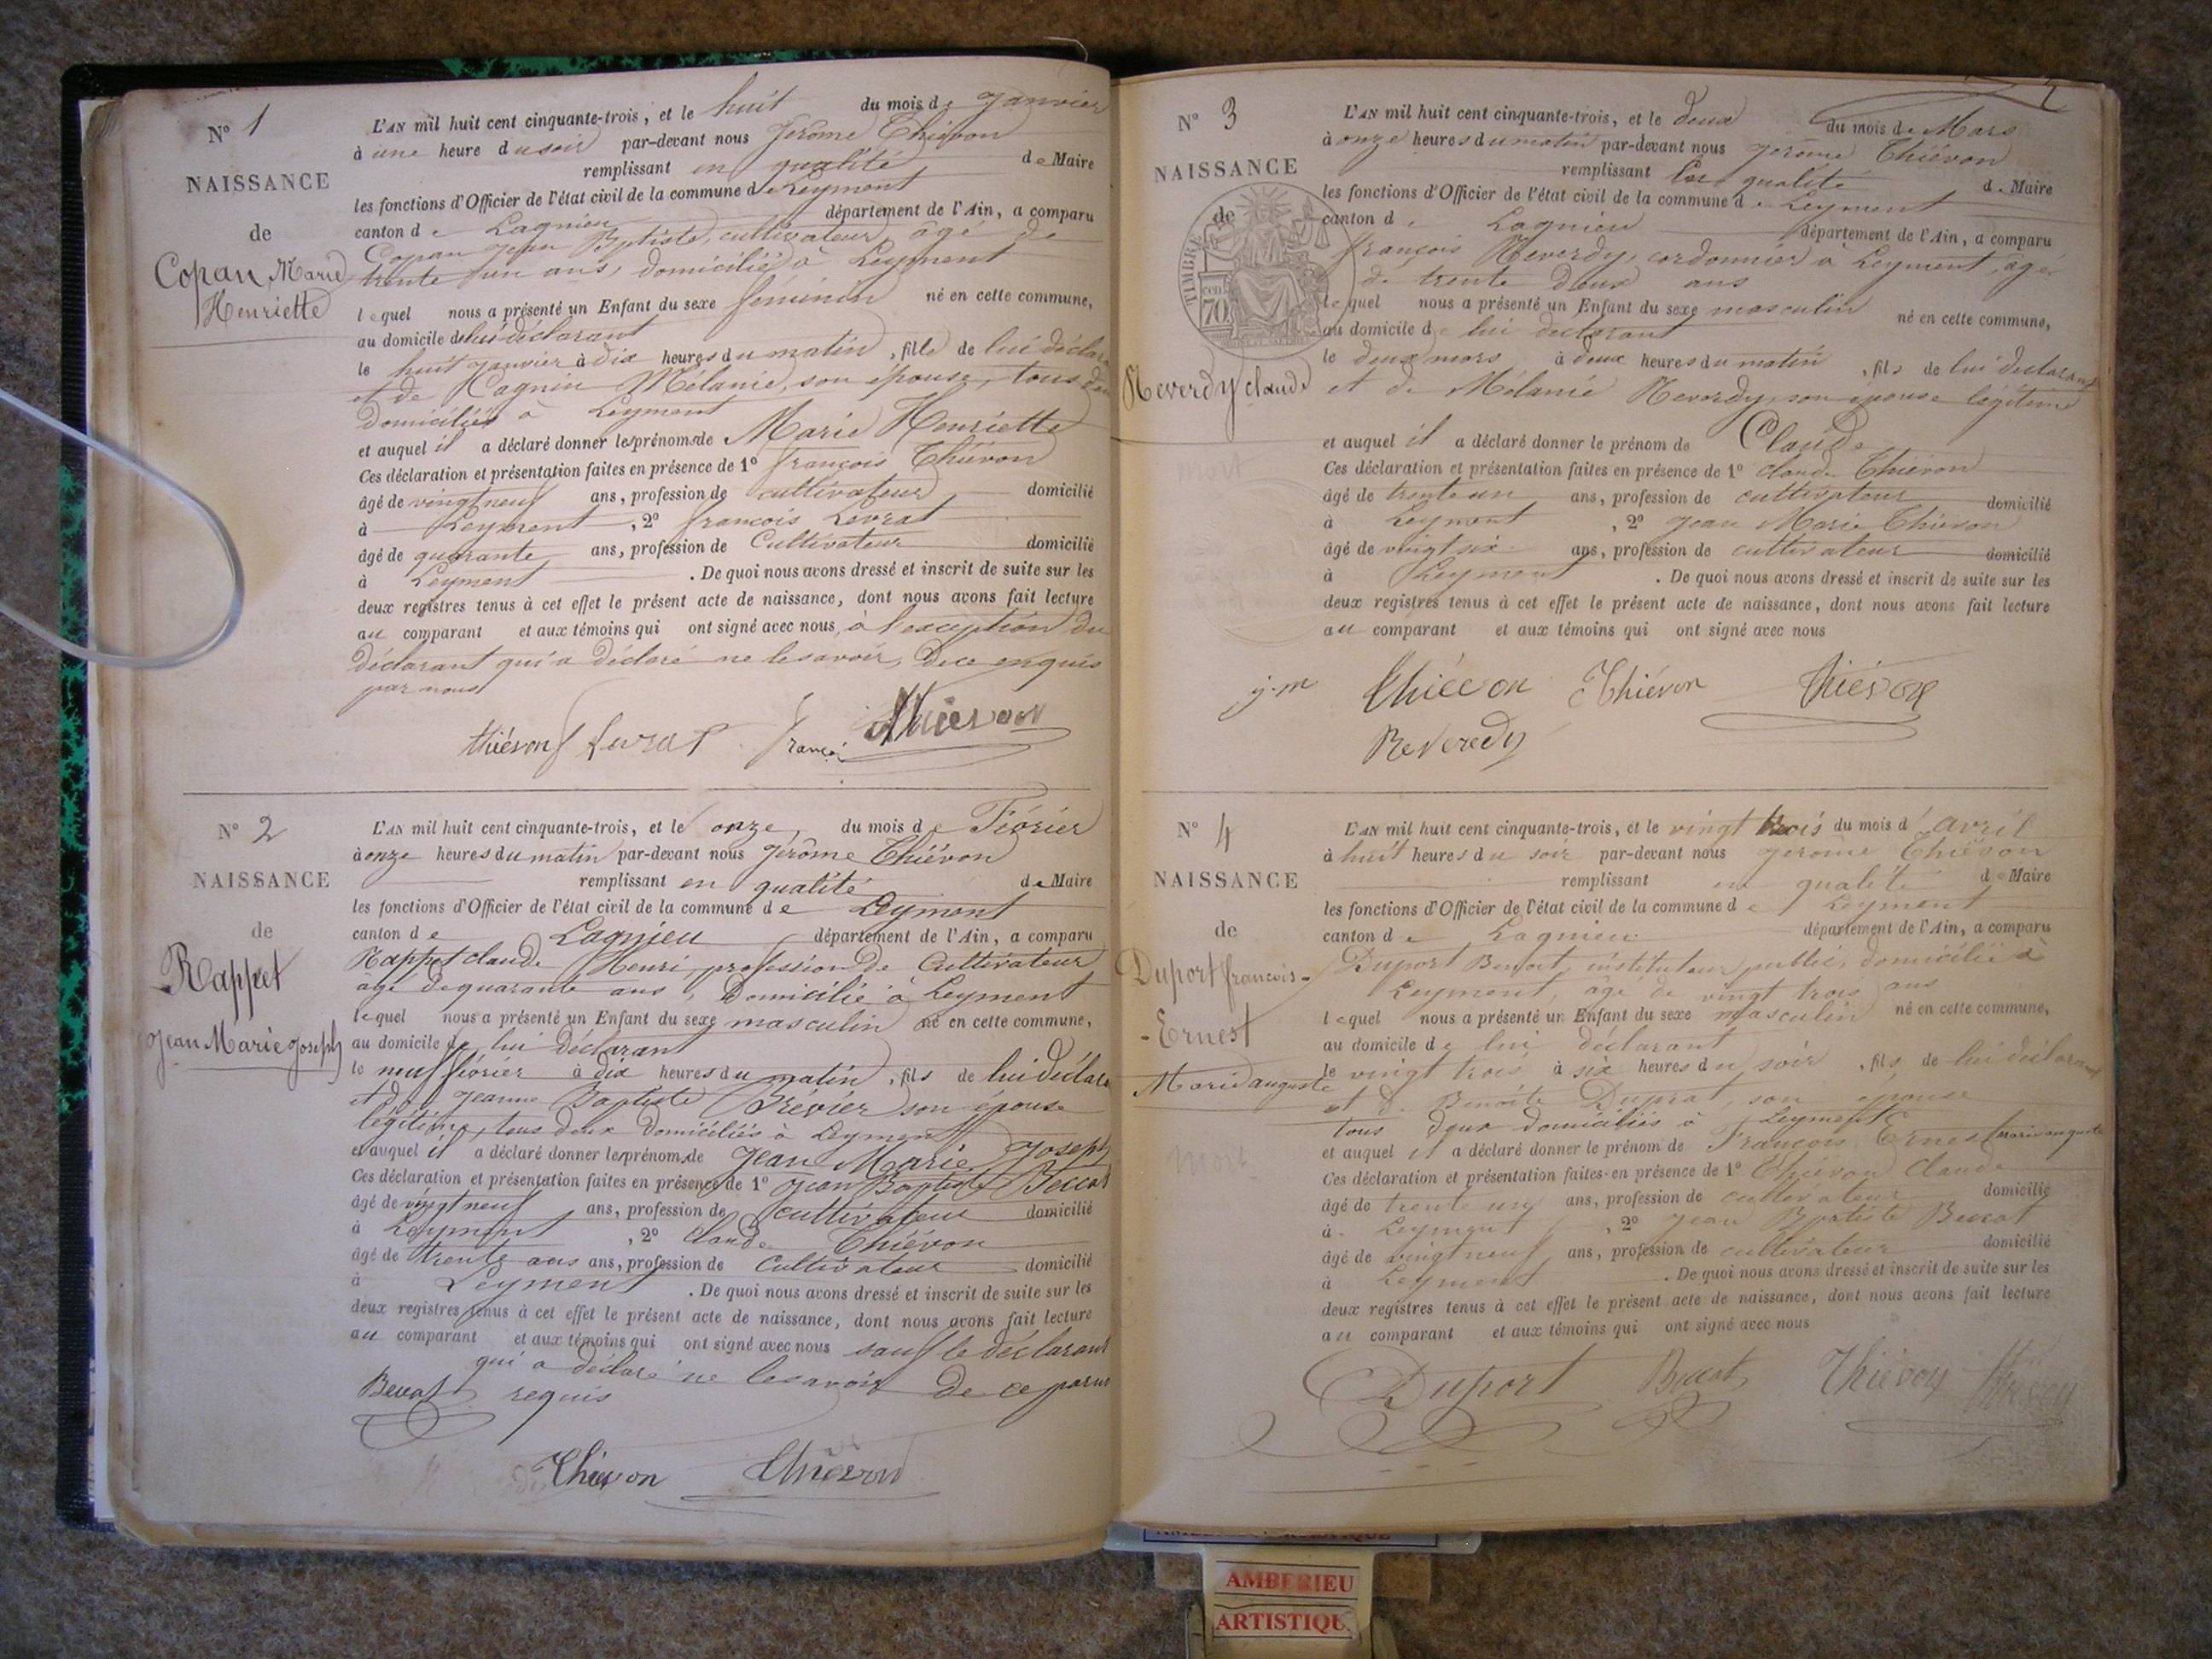 N° 1
NAISSANCE
de
Copan Marie
Henriette
L'AN mil huit cent cinquante-trois, et le huit du mois de Janvier
à une heure du soir par-devant nous Jérôme Thiévon
remplissant en qualité de Maire
les fonctions d'Officier de l'état civil de la commune de Leyment
canton de Lagnieu département de l'Ain, a comparu
Copan Jean Bptiste, cultivateur âgé de
trente un ans, domicilié à Leyment
lequel nous a présenté un Enfant du sexe féminin né en cette commune,
au domicile de lui déclarant
le huit janvier à dix heures du matin, fille de lui déclara
et de Cagnin Mélanie, son épouse, tous deux
domiciliés à Leyment
et auquel il a déclaré donner les prénoms de Marie Henriette
Ces déclaration et présentation faites en présence de 1° françois Thiévon
âgé de vingt neuf ans, profession de cultivateur domicilié
à Leyment, 2° françois Levrat
âgé de quarante ans, profession de Cultivateur domicilié
à Leyment. De quoi nous avons dressé et inscrit de suite sur les
deux registres tenus à cet effet le présent acte de naissance, dont nous avons fait lecture
au comparant et aux témoins qui ont signé avec nous, à l'exception du
déclarant qui a déclaré ne le savoir, de ce enquis
par nous
thiévon f Levrat françoi Thiévon
N° 2
NAISSANCE
de
Rappet
Jean Marie Joseph
L'AN mil huit cent cinquante-trois, et le onze, du mois de Février
à onze heures du matin par-devant nous Jérôme Thiévon
remplissant en qualité de Maire
les fonctions d'Officier de l'état civil de la commune de Leyment
canton de Lagnieu département de l'Ain, a comparu
Rappet Claude Henri, profession de Cultivateur
âgé de quarante ans, Domicilié à Leyment
lequel nous a présenté un Enfant du sexe masculin né en cette commune,
au domicile de lui Déclarant
le neuf février à dix heures du matin, fils de lui déclara
et de Jeanne Baptiste Brévier son épouse
légitime, tous deux domiciliés à Leyment
et auquel il a déclaré donner les prénoms de Jean Marie Joseph
Ces déclaration et présentation faites en présence de 1° Jean Baptiste Beccat
âgé de vingt neuf ans, profession de cultivateur domicilié
à Leyment, 2° Claude Thiévon
âgé de trente ans ans, profession de Cultivateur domicilié
à Leyment. De quoi nous avons dressé et inscrit de suite sur les
deux registres tenus à cet effet le présent acte de naissance, dont nous avons fait lecture
au comparant et aux témoins qui ont signé avec nous sauf le déclarant
qui a déclaré ne le savoir de ce par nous
Beccat requis
Thiévon Thiévon
N° 3
NAISSANCE
de
TIMBRE
cen. 70
Reverdy claude
mort
L'AN mil huit cent cinquante-trois, et le deux du mois de Mars
à onze heures du matin par-devant nous Jérôme Thiévon
remplissant en qualité de Maire
les fonctions d'Officier de l'état civil de la commune de Leyment
canton de Lagnieu département de l'Ain, a comparu
françois Reverdy, cordonnier à Leyment, âgé
de trente deux ans
lequel nous a présenté un Enfant du sexe masculin né en cette commune,
au domicile de lui déclarant
le deux mars à deux heures du matin, fils de lui déclarant
et de Mélanie Reverdy, son épouse légitime
et auquel il a déclaré donner le prénom de Claude
Ces déclaration et présentation faites en présence de 1° claude Thiévon
âgé de trente un ans, profession de cultivateur domicilié
à Leyment, 2° Jean Marie Thiévon
âgé de vingt six ans, profession de cultivateur domicilié
à Leyment. De quoi nous avons dressé et inscrit de suite sur les
deux registres tenus à cet effet le présent acte de naissance, dont nous avons fait lecture
au comparant et aux témoins qui ont signé avec nous
j.m Thiévon Thiévon Thiévon
Reveredy
N° 4
NAISSANCE
de
Duport françois-
-Ernest
Marie auguste
Mort
L'AN mil huit cent cinquante-trois, et le vingt trois du mois d'avril
à huit heures du soir par-devant nous Jérôme Thiévon
remplissant en qualité de Maire
les fonctions d'Officier de l'état civil de la commune de Leyment
canton de Lagnieu département de l'Ain, a comparu
Duport Benoit, instituteur public, domicilié à
Leyment, âgé de vingt trois ans
lequel nous a présenté un Enfant du sexe masculin né en cette commune,
au domicile de lui déclarant
le vingt trois à six heures du soir, fils de lui déclarant
et de Benoite Duprat, son épouse
tous deux domiciliés à Leyment
et auquel il a déclaré donner le prénom de François Ernest Marie auguste
Ces déclaration et présentation faites en présence de 1° Thiévon Claude
âgé de trente un ans, profession de cultivateur domicilié
à Leyment, 2° Jean Bptiste Beccat
âgé de vingt neuf ans, profession de cultivateur domicilié
à Leyment. De quoi nous avons dressé et inscrit de suite sur les
deux registres tenus à cet effet le présent acte de naissance, dont nous avons fait lecture
au comparant et aux témoins qui ont signé avec nous
Duport Beccat Thiévon Thiévon
AMBERIEU
ARTISTIQU